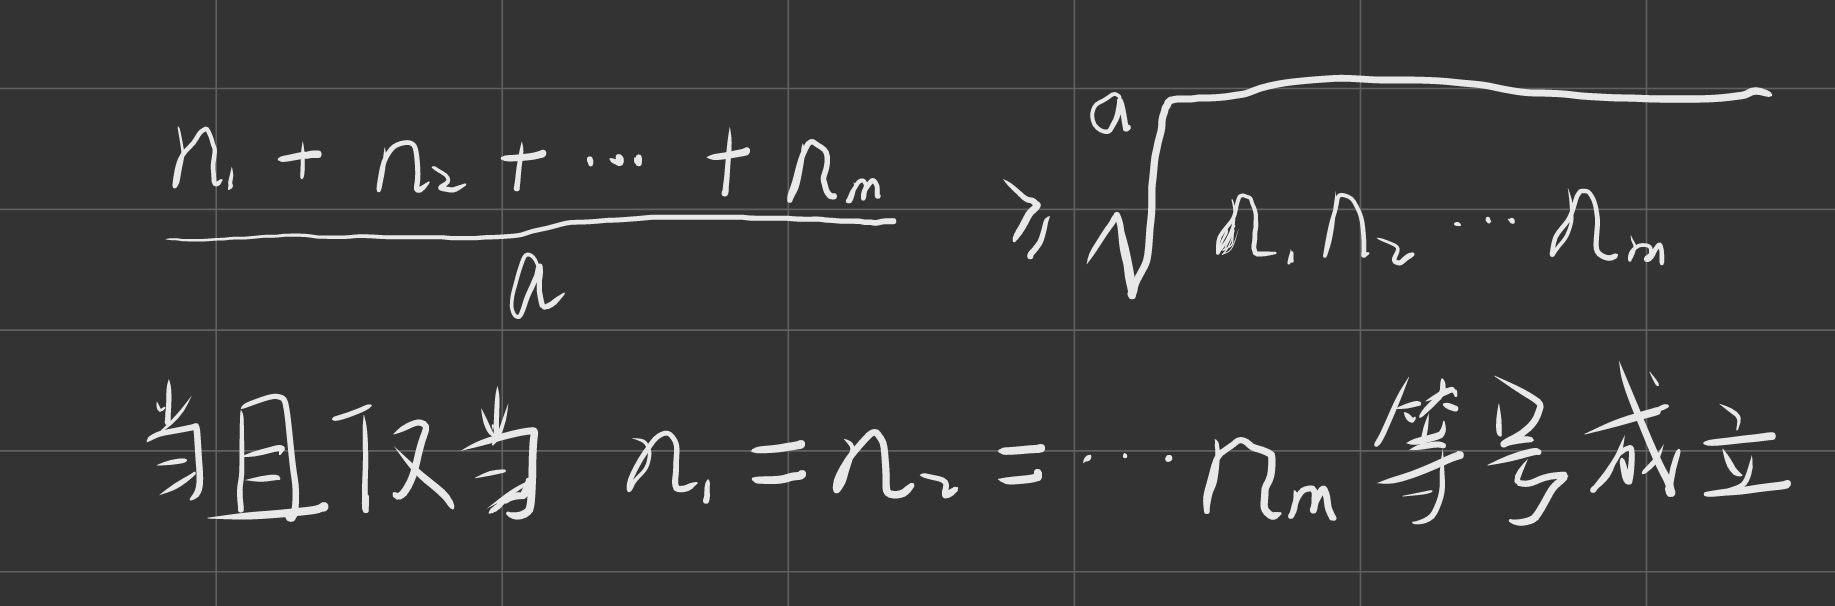 (n₁ + n₂ + ⋯ + nₘ)/a ≥ ᵃ√(n₁n₂⋯nₘ)
当且仅当 n₁=n₂=⋯nₘ 等号成立